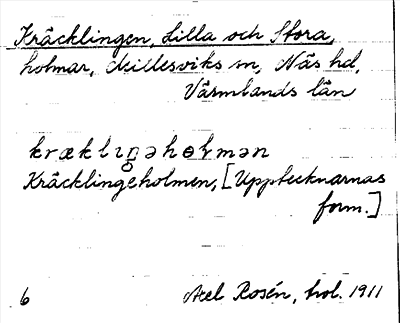 Kräcklingen, Lilla och Stora,
holmar, Millesviks sn, Näs hd,
Värmlands län
kræklıŋ̥əhɵɫmən
Kräcklingeholmen, [Upptecknarnas
form.]
6 Axel Rosén, hol. 1911